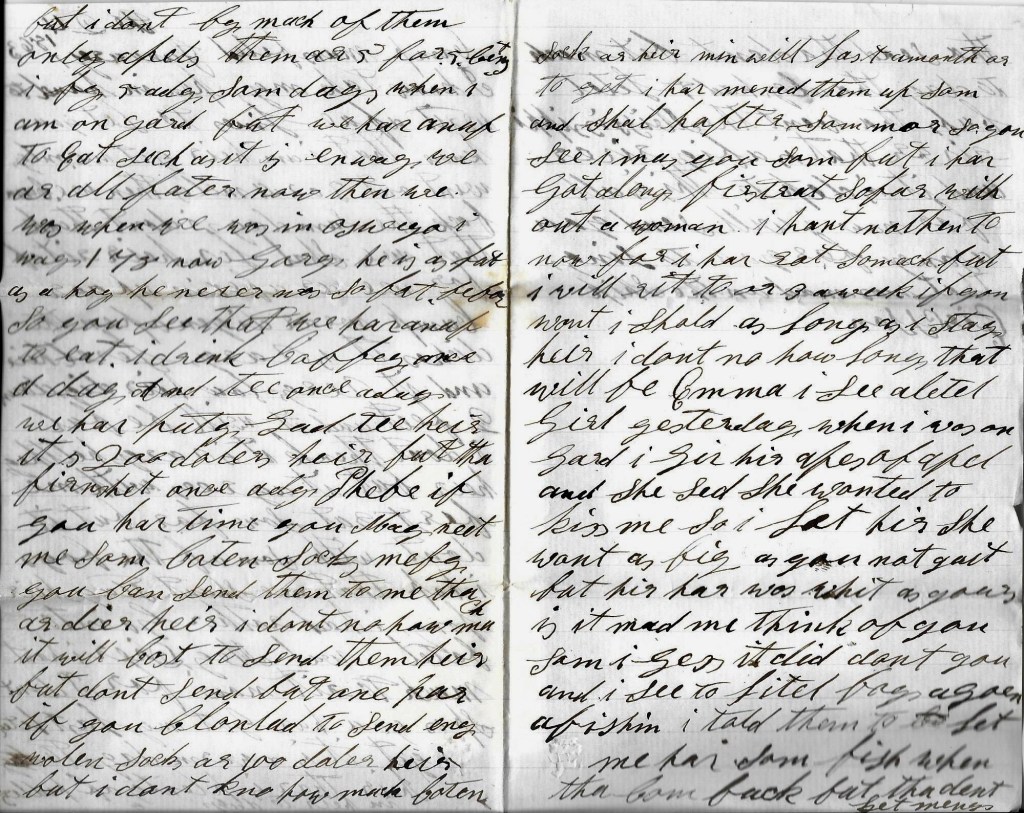 but i dont by mach of them
only apels them ar 5 for 5 cints
i by 5 ady som days when i
am on gard but we har anuf
to Eat sech as it is enways we
ar all fater now then we
was when we was in oswego i
way 173 now Gorg he is as fat
as a hog he never was so fat before
so you see that we har anuf
to eat i drink Coffey once
a day and tee once a day
we har puty Gad tee heir
it is 200 dolers heir but tha
firnshet once ady Phebe if
you har time you May neet
me som coten socks mebey
you can send them to me tha
ar dier heir i dont no how much
it will cost to send them heir
but dont send but one par
if you Clonlad to send eny
wolen socks ar 100 doler heir
but i dont kno how mach coten
sock ar heir min will last a month or
to yet i har mened them up som
and shal hafter som mor so you
see i mis you som but i har
Got along firstrat so far with
out a woman i hant nothen to
now for i har rot so mach but
i will rit to or 3 a week if you
wont i shold as long as i stay
heir i dont no how long that
will be Emma i see a litel
Girl yesterday when i was on
Gard i Gir hir apes of apel
and she sed she wonted to
kiss me so i lot hir she
want as big as you not quit
but hir har was whit as yours
is it mad me think of you
som i Gess it did dont you
and i see to litel boys agoen
afishin i told them to to let
me har som fish when
tha Com back but tha dent
let me now